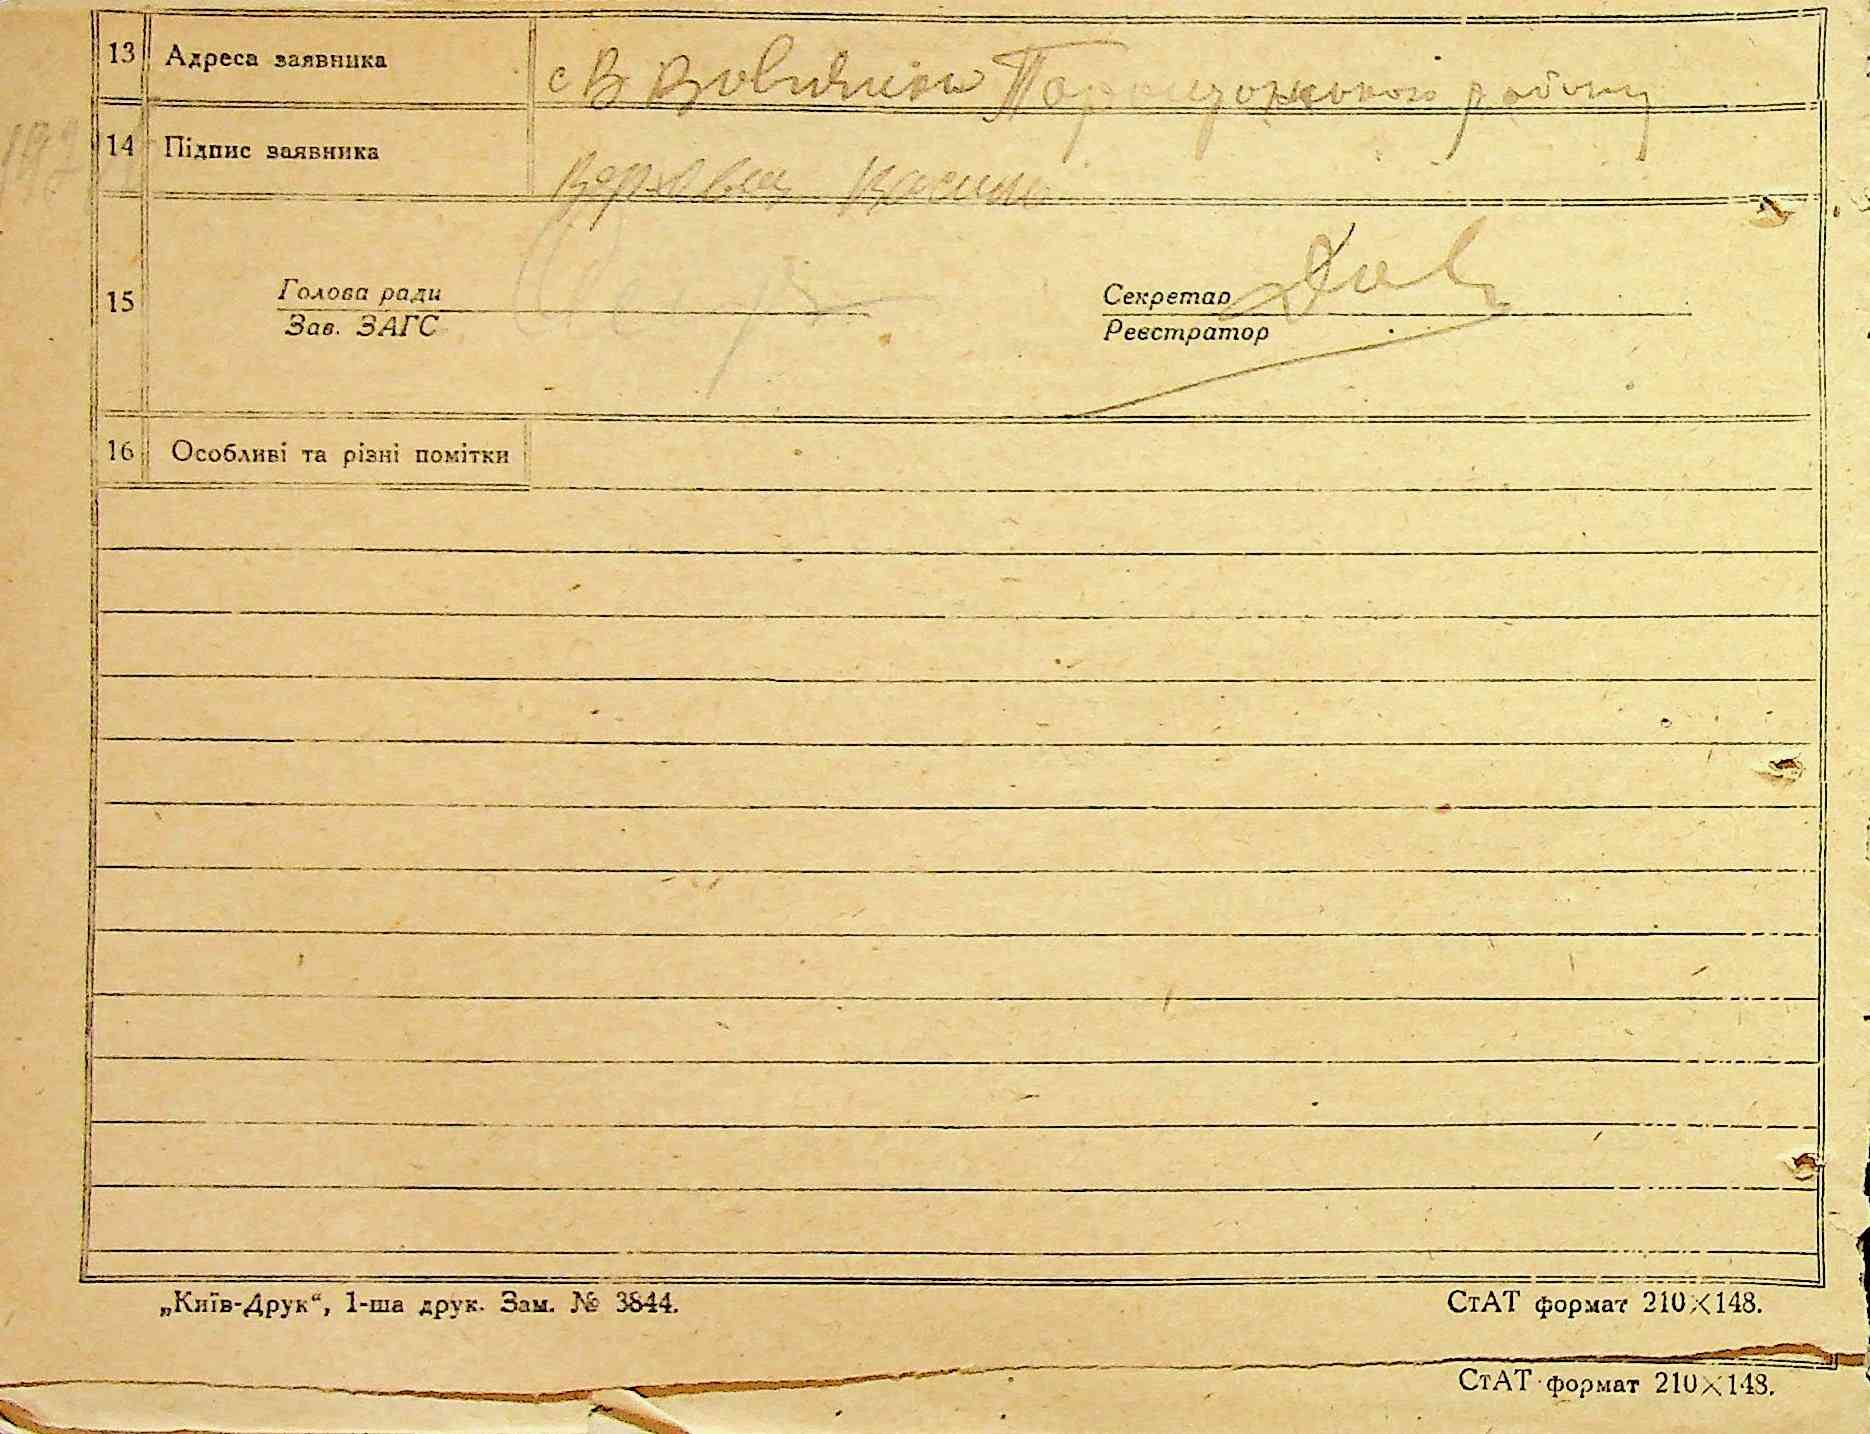 13 Адреса заявника с В Вовнянка Таращанського району
14 Підпис заявника Верховец Василь
15 Голова ради
Зав. ЗАГС
Секретар
Реєстратор
16 Особливі та різні помітки
„Київ-Друк“, 1-ша друк. Зам. № 3844.
СтАТ формат 210×148.
СтАТ формат 210×148.